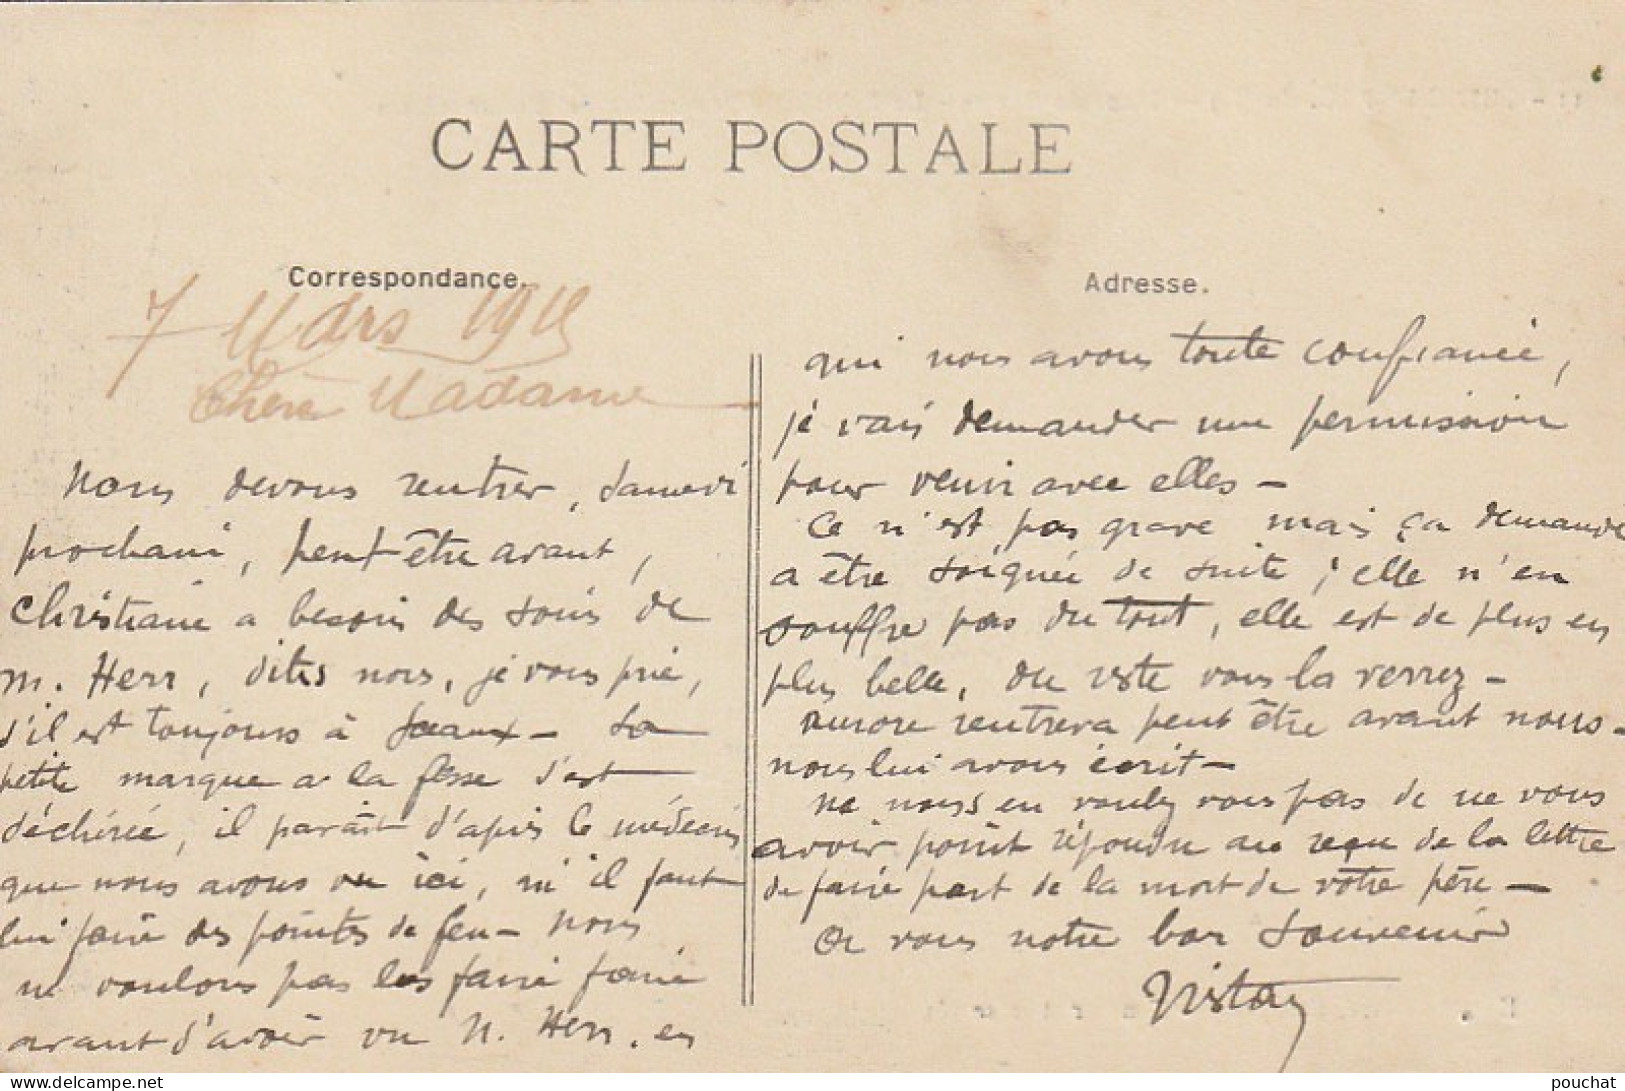 CARTE POSTALE
Correspondance.
7 Mars 1918
Chère Madame
Nous devons rentrer, samedi
prochain, peut-être avant,
Christiane a besoin des soins de
M. Herr, dites nous, je vous prie,
s'il est toujours à Sceaux - Sa
petite marque a la fesse s'est
déchirée, il paraît d'après le médecin
que nous avons vu ici, qu'il faut
lui faire des pointes de feu - Nous
ne voulons pas les faire faire
avant d'avoir vu M. Herr, en
Adresse.
qui nous avons toute confiance,
je vais demander une permission
pour venir avec elles -
Ce n'est pas grave mais ça demande
a être soignée de suite ; elle n'en
souffre pas du tout, elle est de plus en
plus belle, du reste vous la verrez -
Aurore rentrera peut être avant nous -
nous lui avons écrit -
Ne nous en voulez vous pas de ne vous
avoir point répondu au reçu de la lettre
de faire part de la mort de votre père -
A vous notre bon souvenir
pouchat